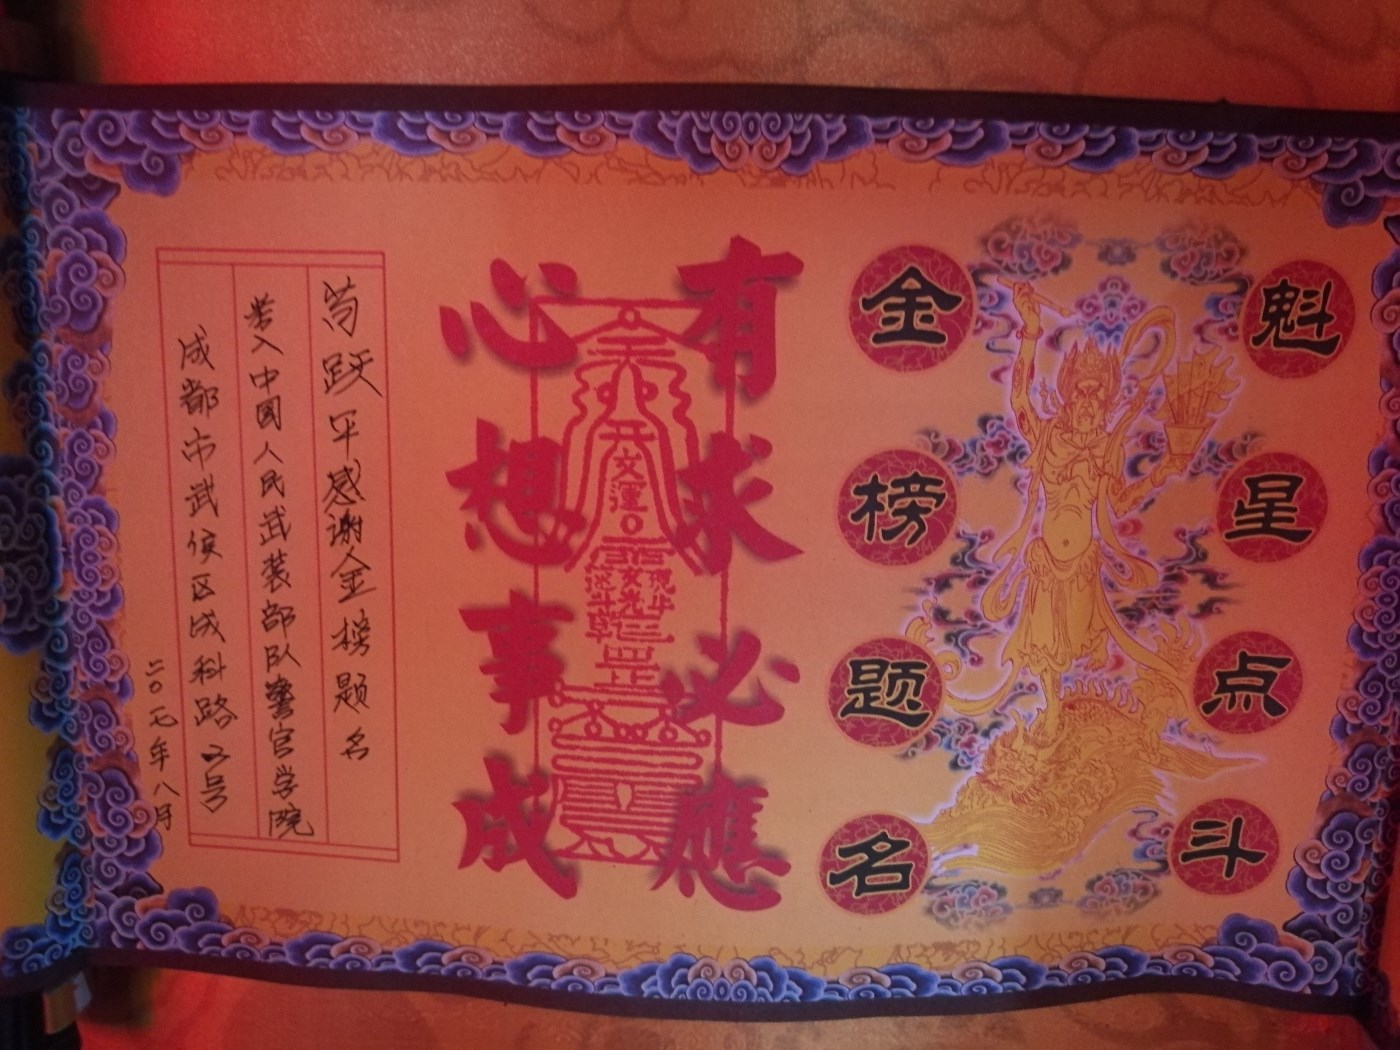 魁星点斗
金榜题名
有求必應
心想事成
文運
跃平感谢金榜题名
考入中國人民武装部队警官学院
成都市武侯区成科路号
二〇一七年八月